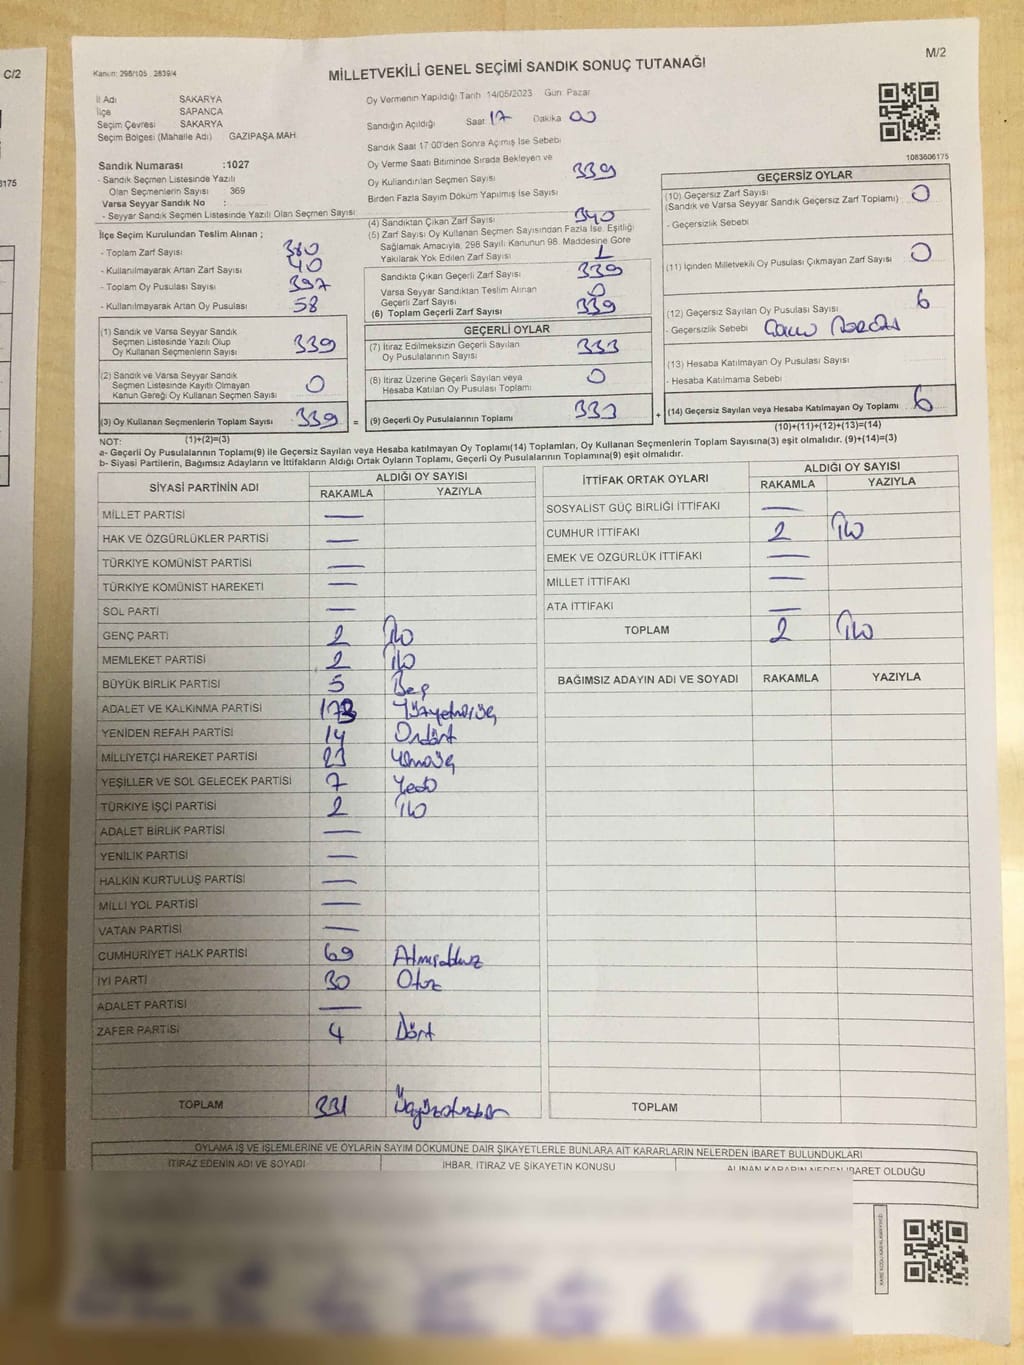 C/2
3175
M/2
Kanun: 298/105 , 2839/4
MİLLETVEKİLİ GENEL SEÇİMİ SANDIK SONUÇ TUTANAĞI
İl Adı SAKARYA
İlçe SAPANCA
Seçim Çevresi SAKARYA
Seçim Bölgesi (Mahalle Adı) GAZİPAŞA MAH.
Sandık Numarası :1027
- Sandık Seçmen Listesinde Yazılı
Olan Seçmenlerin Sayısı 369
Varsa Seyyar Sandık No :
- Seyyar Sandık Seçmen Listesinde Yazılı Olan Seçmen Sayısı
İlçe Seçim Kurulundan Teslim Alınan ;
- Toplam Zarf Sayısı 380
- Kullanılmayarak Artan Zarf Sayısı 40
- Toplam Oy Pusulası Sayısı 397
- Kullanılmayarak Artan Oy Pusulası 58
(1) Sandık ve Varsa Seyyar Sandık
Seçmen Listesinde Yazılı Olup
Oy Kullanan Seçmenlerin Sayısı 339
(2) Sandık ve Varsa Seyyar Sandık
Seçmen Listesinde Kayıtlı Olmayan
Kanun Gereği Oy Kullanan Seçmen Sayısı 0
(3) Oy Kullanan Seçmenlerin Toplam Sayısı 339 =
Oy Vermenin Yapıldığı Tarih 14/05/2023 Gün: Pazar
Sandığın Açıldığı Saat: 17 Dakika 00
Sandık Saat 17:00'den Sonra Açmış İse Sebebi
Oy Verme Saati Bitiminde Sırada Bekleyen ve
Oy Kullandırılan Seçmen Sayısı 339
Birden Fazla Sayım Döküm Yapılmış İse Sayısı
(4) Sandıktan Çıkan Zarf Sayısı 340
(5) Zarf Sayısı Oy Kullanan Seçmen Sayısından Fazla İse, Eşitliği
Sağlamak Amacıyla, 298 Sayılı Kanunun 98. Maddesine Göre
Yakılarak Yok Edilen Zarf Sayısı 1
Sandıkta Çıkan Geçerli Zarf Sayısı 339
Varsa Seyyar Sandıktan Teslim Alınan
Geçerli Zarf Sayısı 0
(6) Toplam Geçerli Zarf Sayısı 339
GEÇERLİ OYLAR
(7) İtiraz Edilmeksizin Geçerli Sayılan
Oy Pusulalarının Sayısı 333
(8) İtiraz Üzerine Geçerli Sayılan veya
Hesaba Katılan Oy Pusulası Toplamı 0
(9) Geçerli Oy Pusulalarının Toplamı 333 +
1083606175
GEÇERSİZ OYLAR
(10) Geçersiz Zarf Sayısı 0
(Sandık ve Varsa Seyyar Sandık Geçersiz Zarf Toplamı)
- Geçersizlik Sebebi
(11) İçinden Milletvekili Oy Pusulası Çıkmayan Zarf Sayısı 0
(12) Geçersiz Sayılan Oy Pusulası Sayısı 6
- Geçersizlik Sebebi
(13) Hesaba Katılmayan Oy Pusulası Sayısı
- Hesaba Katılmama Sebebi
(14) Geçersiz Sayılan veya Hesaba Katılmayan Oy Toplamı 6
(10)+(11)+(12)+(13)=(14)
NOT: (1)+(2)=(3)
a- Geçerli Oy Pusulalarının Toplamı(9) ile Geçersiz Sayılan veya Hesaba katılmayan Oy Toplamı(14) Toplamları, Oy Kullanan Seçmenlerin Toplam Sayısına(3) eşit olmalıdır. (9)+(14)=(3)
b- Siyasi Partilerin, Bağımsız Adayların ve İttifakların Aldığı Ortak Oyların Toplamı, Geçerli Oy Pusulalarının Toplamına(9) eşit olmalıdır.
SİYASİ PARTİNİN ADI ALDIĞI OY SAYISI
RAKAMLA YAZIYLA
MİLLET PARTİSİ —
HAK VE ÖZGÜRLÜKLER PARTİSİ —
TÜRKİYE KOMÜNİST PARTİSİ —
TÜRKİYE KOMÜNİST HAREKETİ —
SOL PARTİ —
GENÇ PARTİ 2 İki
MEMLEKET PARTİSİ 2 İki
BÜYÜK BİRLİK PARTİSİ 5 Beş
ADALET VE KALKINMA PARTİSİ 173 Yüzyetmişüç
YENİDEN REFAH PARTİSİ 14 Ondört
MİLLİYETÇİ HAREKET PARTİSİ 23 Yirmiüç
YEŞİLLER VE SOL GELECEK PARTİSİ 7 Yedi
TÜRKİYE İŞÇİ PARTİSİ 2 İki
ADALET BİRLİK PARTİSİ —
YENİLİK PARTİSİ —
HALKIN KURTULUŞ PARTİSİ —
MİLLİ YOL PARTİSİ —
VATAN PARTİSİ —
CUMHURİYET HALK PARTİSİ 69 Altmışdokuz
İYİ PARTİ 30 Otuz
ADALET PARTİSİ —
ZAFER PARTİSİ 4 Dört
TOPLAM 331 Üçyüzotuzbir
İTTİFAK ORTAK OYLARI ALDIĞI OY SAYISI
RAKAMLA YAZIYLA
SOSYALİST GÜÇ BİRLİĞİ İTTİFAKI —
CUMHUR İTTİFAKI 2 İki
EMEK VE ÖZGÜRLÜK İTTİFAKI —
MİLLET İTTİFAKI —
ATA İTTİFAKI —
TOPLAM 2 İki
BAĞIMSIZ ADAYIN ADI VE SOYADI RAKAMLA YAZIYLA
TOPLAM
OYLAMA İŞ VE İŞLEMLERİNE VE OYLARIN SAYIM DÖKÜMÜNE DAİR ŞİKAYETLERLE BUNLARA AİT KARARLARIN NELERDEN İBARET BULUNDUKLARI
İTİRAZ EDENİN ADI VE SOYADI İHBAR, İTİRAZ VE ŞİKAYETİN KONUSU ALINAN KARARIN NEDEN İBARET OLDUĞU